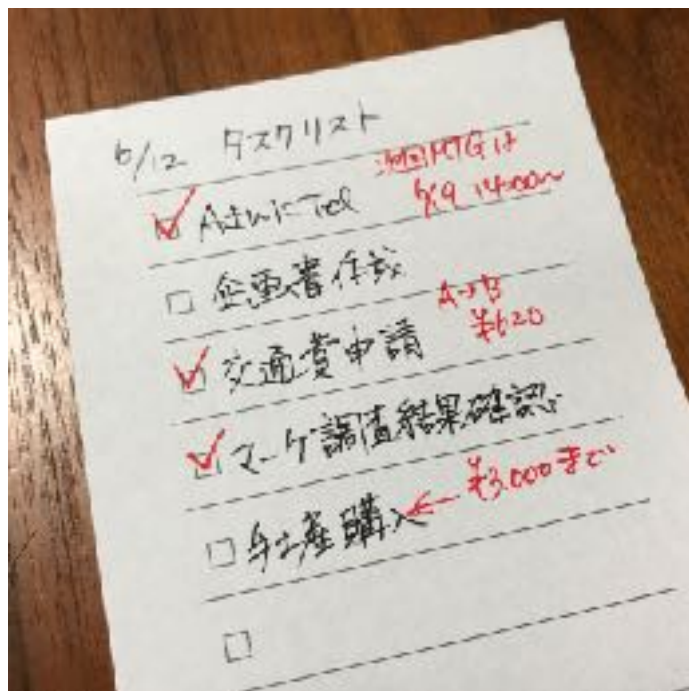 6/12 タスクリスト
A社にTel
次回MTGは
6/19 14:00〜
企画書作成
交通費申請
A→B
¥620
マーケ調査結果確認
手土産購入 ← ¥3,000まで